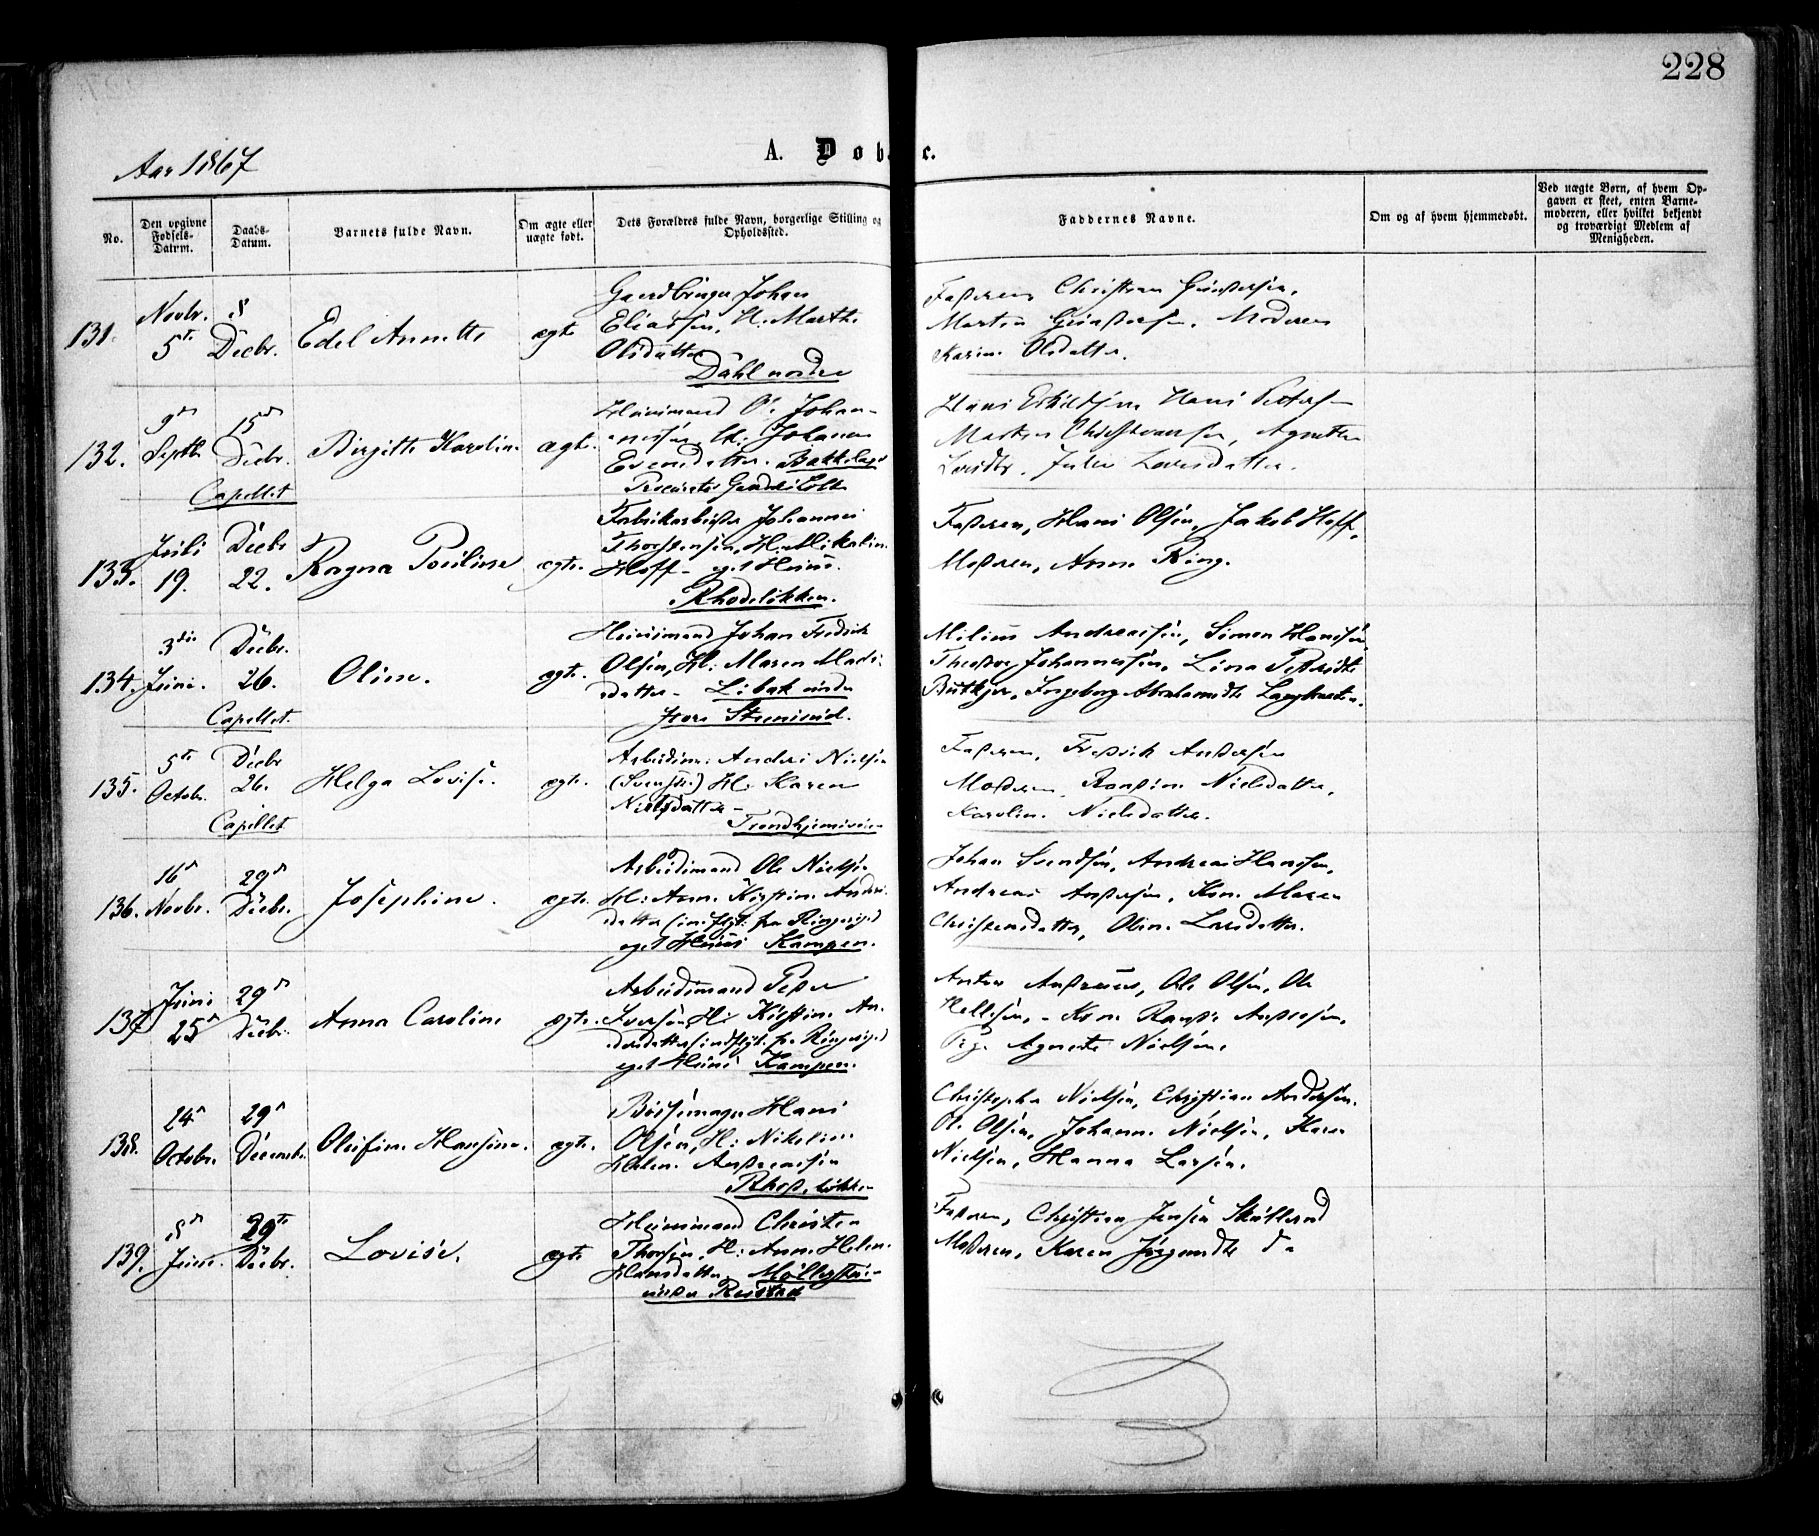 228
Aar 1867
A. Døbte.
No.
Den opgivne Fødsels-Datum.
Daabs-Datum.
Barnets fulde Navn.
Om ægte eller uægte født.
Dets Forældres fulde Navn, borgerlige Stilling og Opholdssted.
Faddernes Navne.
Om og af hvem hjemmedøbt.
Ved uægte Børn, af hvem Op-
gaven er skeet, enten Barne-
moderen, eller hvilket bekjendt
og troværdigt Medlem af
Menigheden.
131.
Novbr. 5te
8 Decbr.
Edel Annette
ægte
Gaardbruger Johan
Eliassen, H: Marthe
Olsdatter
Dahl nordre
Faderen, Christian
Martin Moderen
Karin Olsdatter.
132.
9de Septbr.
15de Decbr.
Capellet
Birgitte Karoline
ægte.
Huusmand O. Johan-
nessen, H: Johanne
Evensdatter.
Hans Hans Petersen
Martin Christiansen, Agnethe
Larsdtr, Julie Larsdatter.
133.
Juli 19.
Decbr 22.
Ragna Pouline
ægte.
Fabrikarbeider Johannes
Thorstensen, H: Mikaline
Hoff - eget Huus.
Rhodeløkken.
Faderen, Hans Olsen, Jakob Hoff,
Moderen, Anne Ring.
134.
3die Juni.
Decbr. 26.
Capellet.
Oline.
ægte.
Huusmand Johan Fredrik
Olsen, H: Maren Mads-
datter - Libak under
Milius Andreassen, Simon Hansen,
Theodor Johannessen, Lina Pedersdtr
Ingeborg Abrahamsdtr
135.
5te Octobr.
Decbr 26.
Capellet
Helga Lovise.
ægte.
Arbeidsm: Anders Nielsen
(Svensk) H: Karen
Nielsdatter -
Trondhjemsveien
Faderen, Fredrik Andersen
Moderen, Nielsdatter,
Karoline Nielsdatter.
136.
16de Novbr.
29de Decbr.
Josephine.
ægte.
Arbeidsmand Ole Nielsen
H: Anne Kirstine Anders-
datter (indflyt: fra Ringerige)
eget Huus Kampen.
Johan Svendsen, Andreas Hansen,
Andreas Andersen, Kone Maren
Christensdatter, Oline Larsdatter.
137
Juni 25de
29de Decbr.
Anna Caroline
ægte.
Arbeidsmand Peder
Iversen, H: Kirstine An-
dersdatter indflyt: fra Ringerige)
eget Huus Kampen.
Anton Ole Olsen, Ole
Kone Andersen,
Pige Agnethe Nielsen.
138.
24de Octobr.
29de Decembr.
Olufine Hansine.
ægte.
Bøssemager Hans
Olsen, H: Nikoline
Helene Andreassen
Rhodeløkken
Christopher Nielsen, Christian Andersen.
O. Olsen, Johanne Nielsen, Karen
Nielsen, Hanna Larsen.
139.
8de Juni.
29de Decbr.
Lovise.
ægte
Huusmand Christen
Thorsen, H: Anne Helene
Hansdatter,
under
Faderen, Christian Jensen
Moderen, Karen Jørgensdtr do